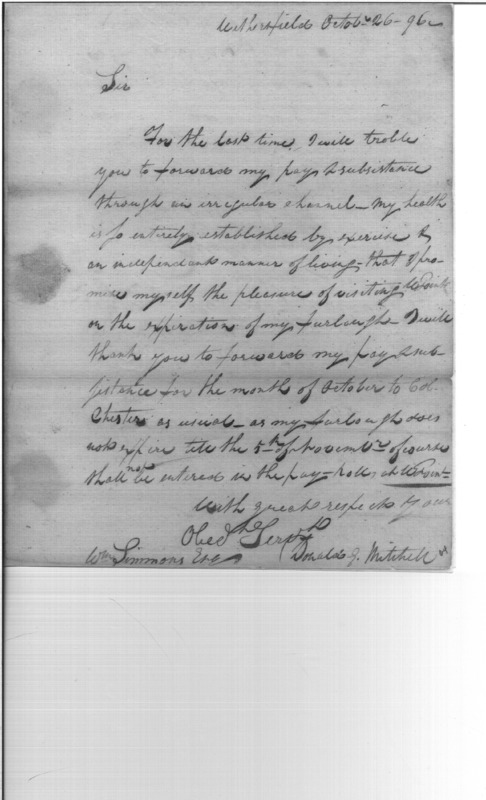 Wethersfield Octobr 26 - 96
Sir
For the last time, I will troble
you to forward my pay & subsistance
through an irregular channel - My health
is so entirely established by exercise &
an independant manner of living that I pro-
mise myself the pleasure of visiting W Point
on the expiration of my furlough - I will
thank you to forward my pay & sub-
sistance for the month of October to Col-
Chester as usual - as my furlough does
not expire till the 5th of Novembr of course
shall not be entered in the pay-rolls at W Point -
With great respect your
Obedt Servt
Wm Simmons Esq Donald G. Mitchell